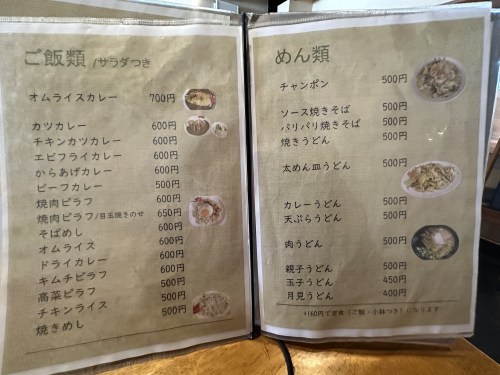 ご飯類 /サラダつき
オムライスカレー 700円
カツカレー 600円
チキンカツカレー 600円
エビフライカレー 600円
からあげカレー 600円
ビーフカレー 500円
焼肉ピラフ 600円
焼肉ピラフ/目玉焼きのせ 650円
そばめし
オムライス
ドライカレー
キムチピラフ 500円
高菜ピラフ 500円
チキンライス 500円
焼きめし
めん類
チャンポン 500円
ソース焼きそば 500円
パリパリ焼きそば 500円
焼きうどん 500円
太めん皿うどん 500円
カレーうどん 500円
天ぷらうどん 500円
肉うどん 500円
親子うどん 500円
玉子うどん 450円
月見うどん 400円
+160円で定食（ご飯・小鉢つき）になります